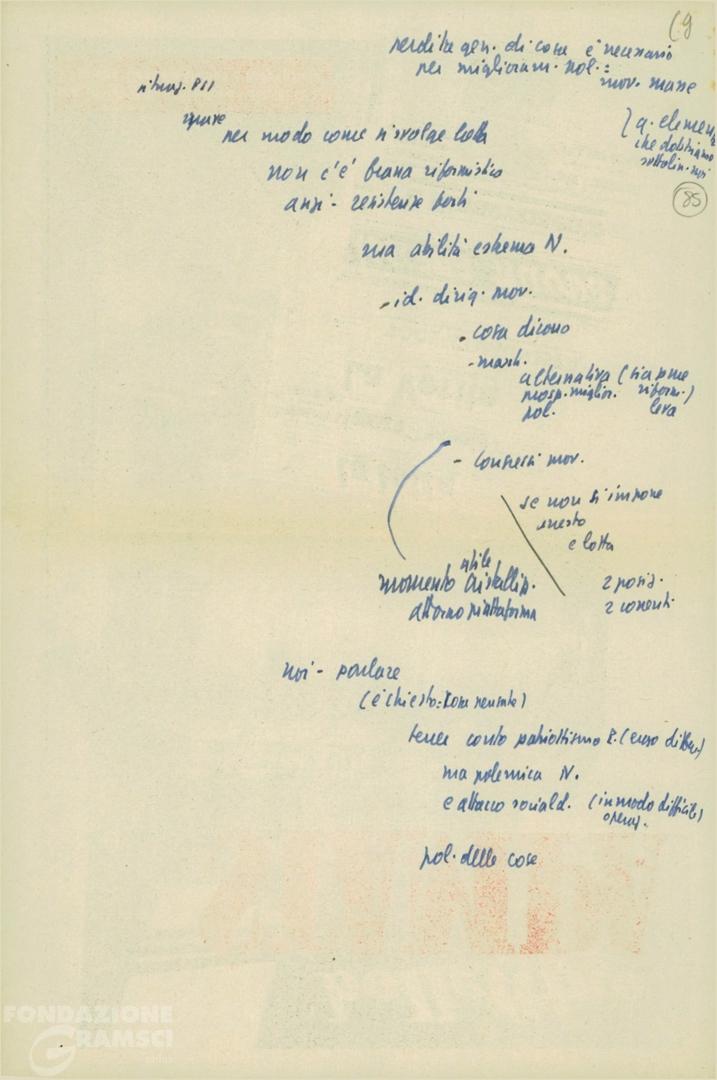 (9
perdita gen. di cose è necessario
per miglioram. pol.:
mov. masse
situaz. PSI
grave
per modo come si svolge lotta
q. elemen.
che dobbiamo
sottolin.
85
non c'è frana riformistica
anzi - resistenze forti
ma abilità estrema N.
- id. dirig. mov.
- cosa dicono
alternativa (sia pure
prosp. miglior. riform.)
pol. leva
- congressi mov.
se non si impone
questo
e lotta
utile
momento cristalliz.
attorno piattaforma
2 posiz.
2 correnti
noi - parlare
(è chiesto: cosa pensate)
tener conto patriottismo P.
ma polemica N.
e attacco sociald. (in modo difficile)
operaz.
pol. delle cose
FONDAZIONE
GRAMSCI